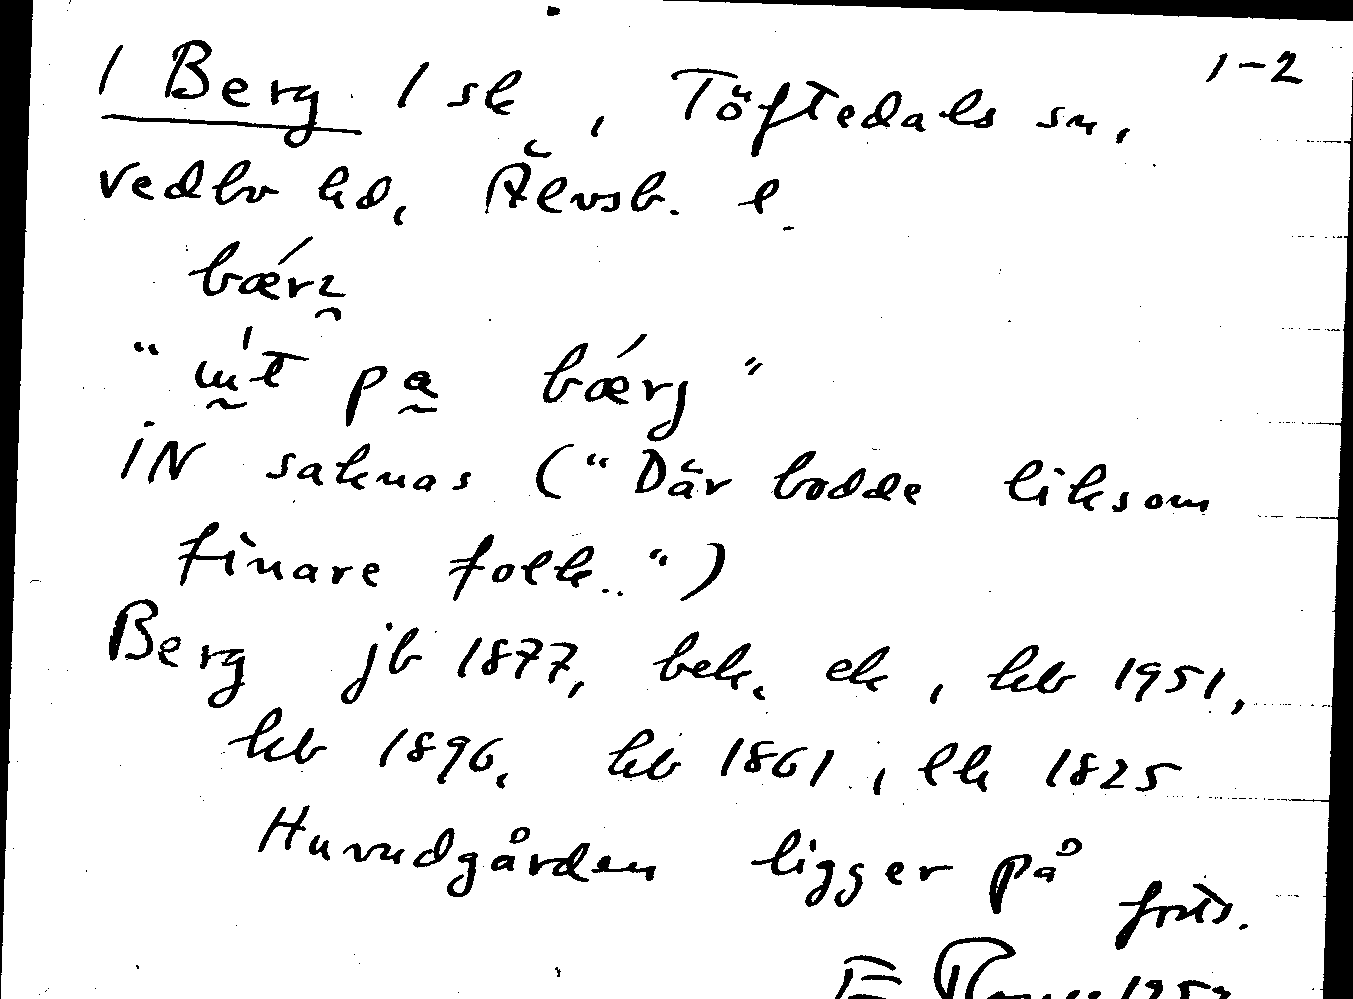 1-2
1 Berg 1 sk, Töftedals sn,
Vedbo hd, Älvsb. l.
bærj
" ut pa bærj "
IN saknas ("Där bodde liksom
finare folk..")
Berg jb 1877, bek. ek, kb 1951,
kb 1896, kb 1861, lk 1825
Huvudgården ligger på
forts.